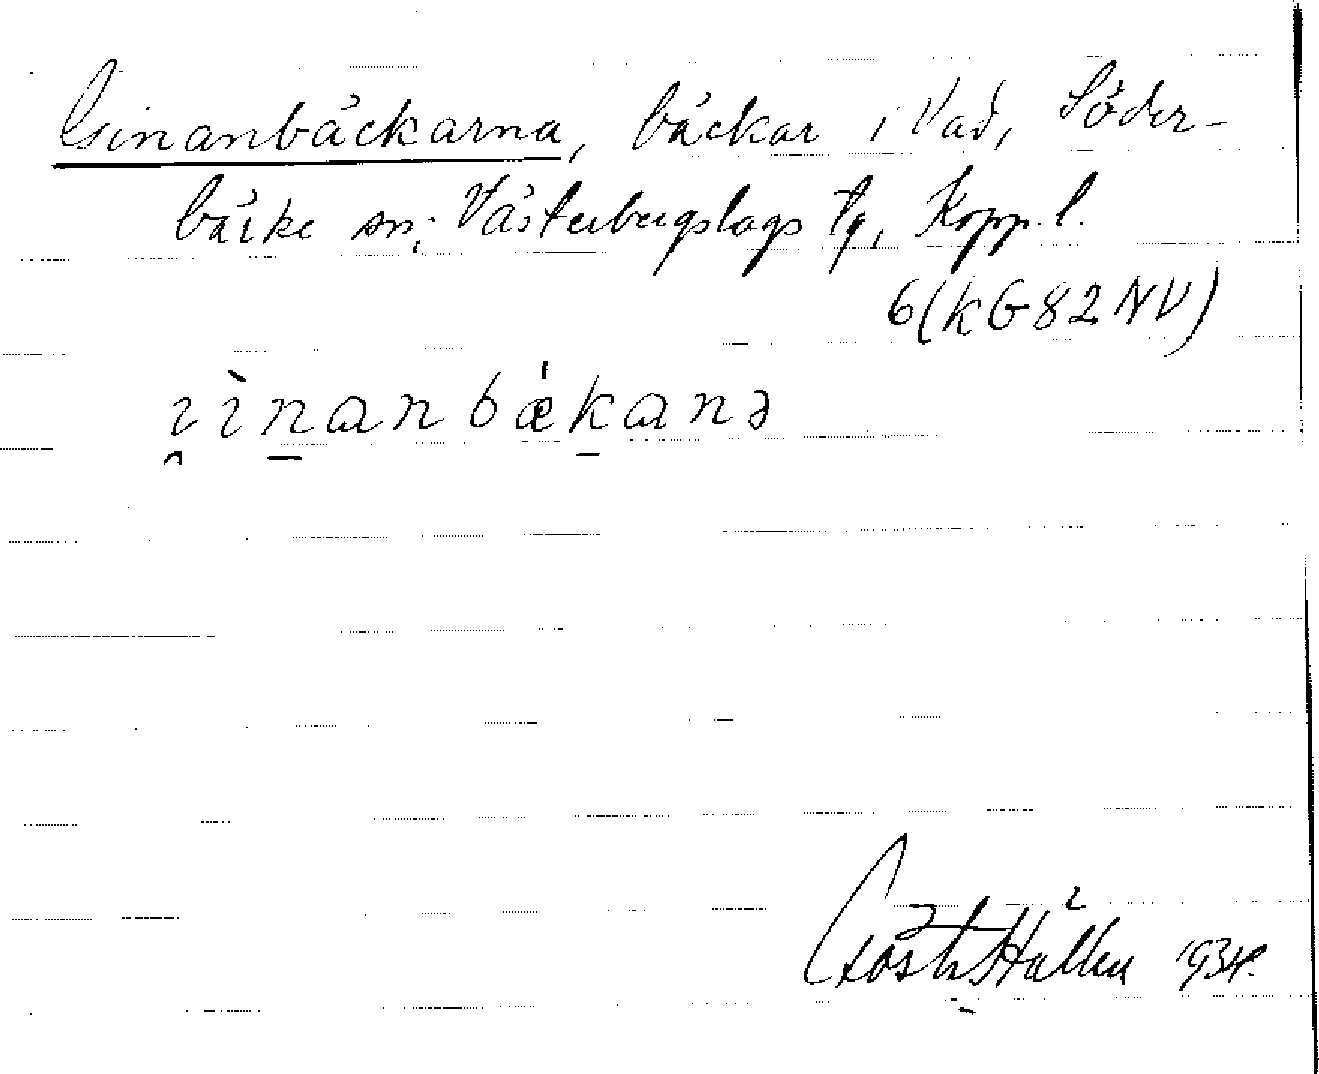 Ginanbäckarna, bäckar i Vad, Söder-
bärke sn; Västerbergslags tg, Kopp. l.
6(KG82NV)
i̯ìn̠anbǽk̠anə
Gösta Hallen 1934.